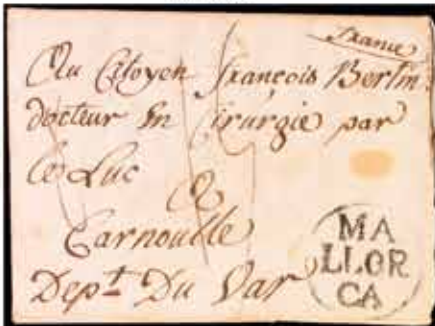 France
Au Citoyen François Bertin
docteur En Cirurgie par
le Luc
A
Carnoulle
Dept. Du Var
MA
LLOR
CA